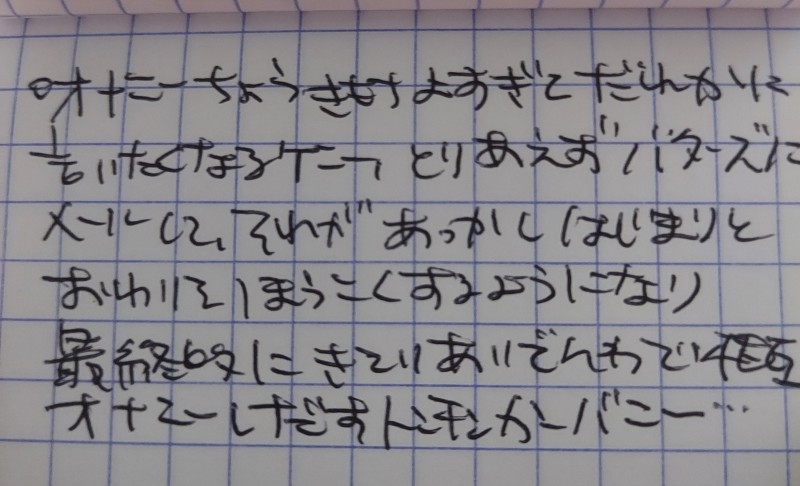 オナニーちょうきもちよすぎてだれかに
言いたくなるケニー、とりあえずバターズに
メールして、それがあっかしはじまりと
おわりをほうこくするようになり
最終的にきどりあいでんわで相互
オナニーしだすトンチンカーバニー…